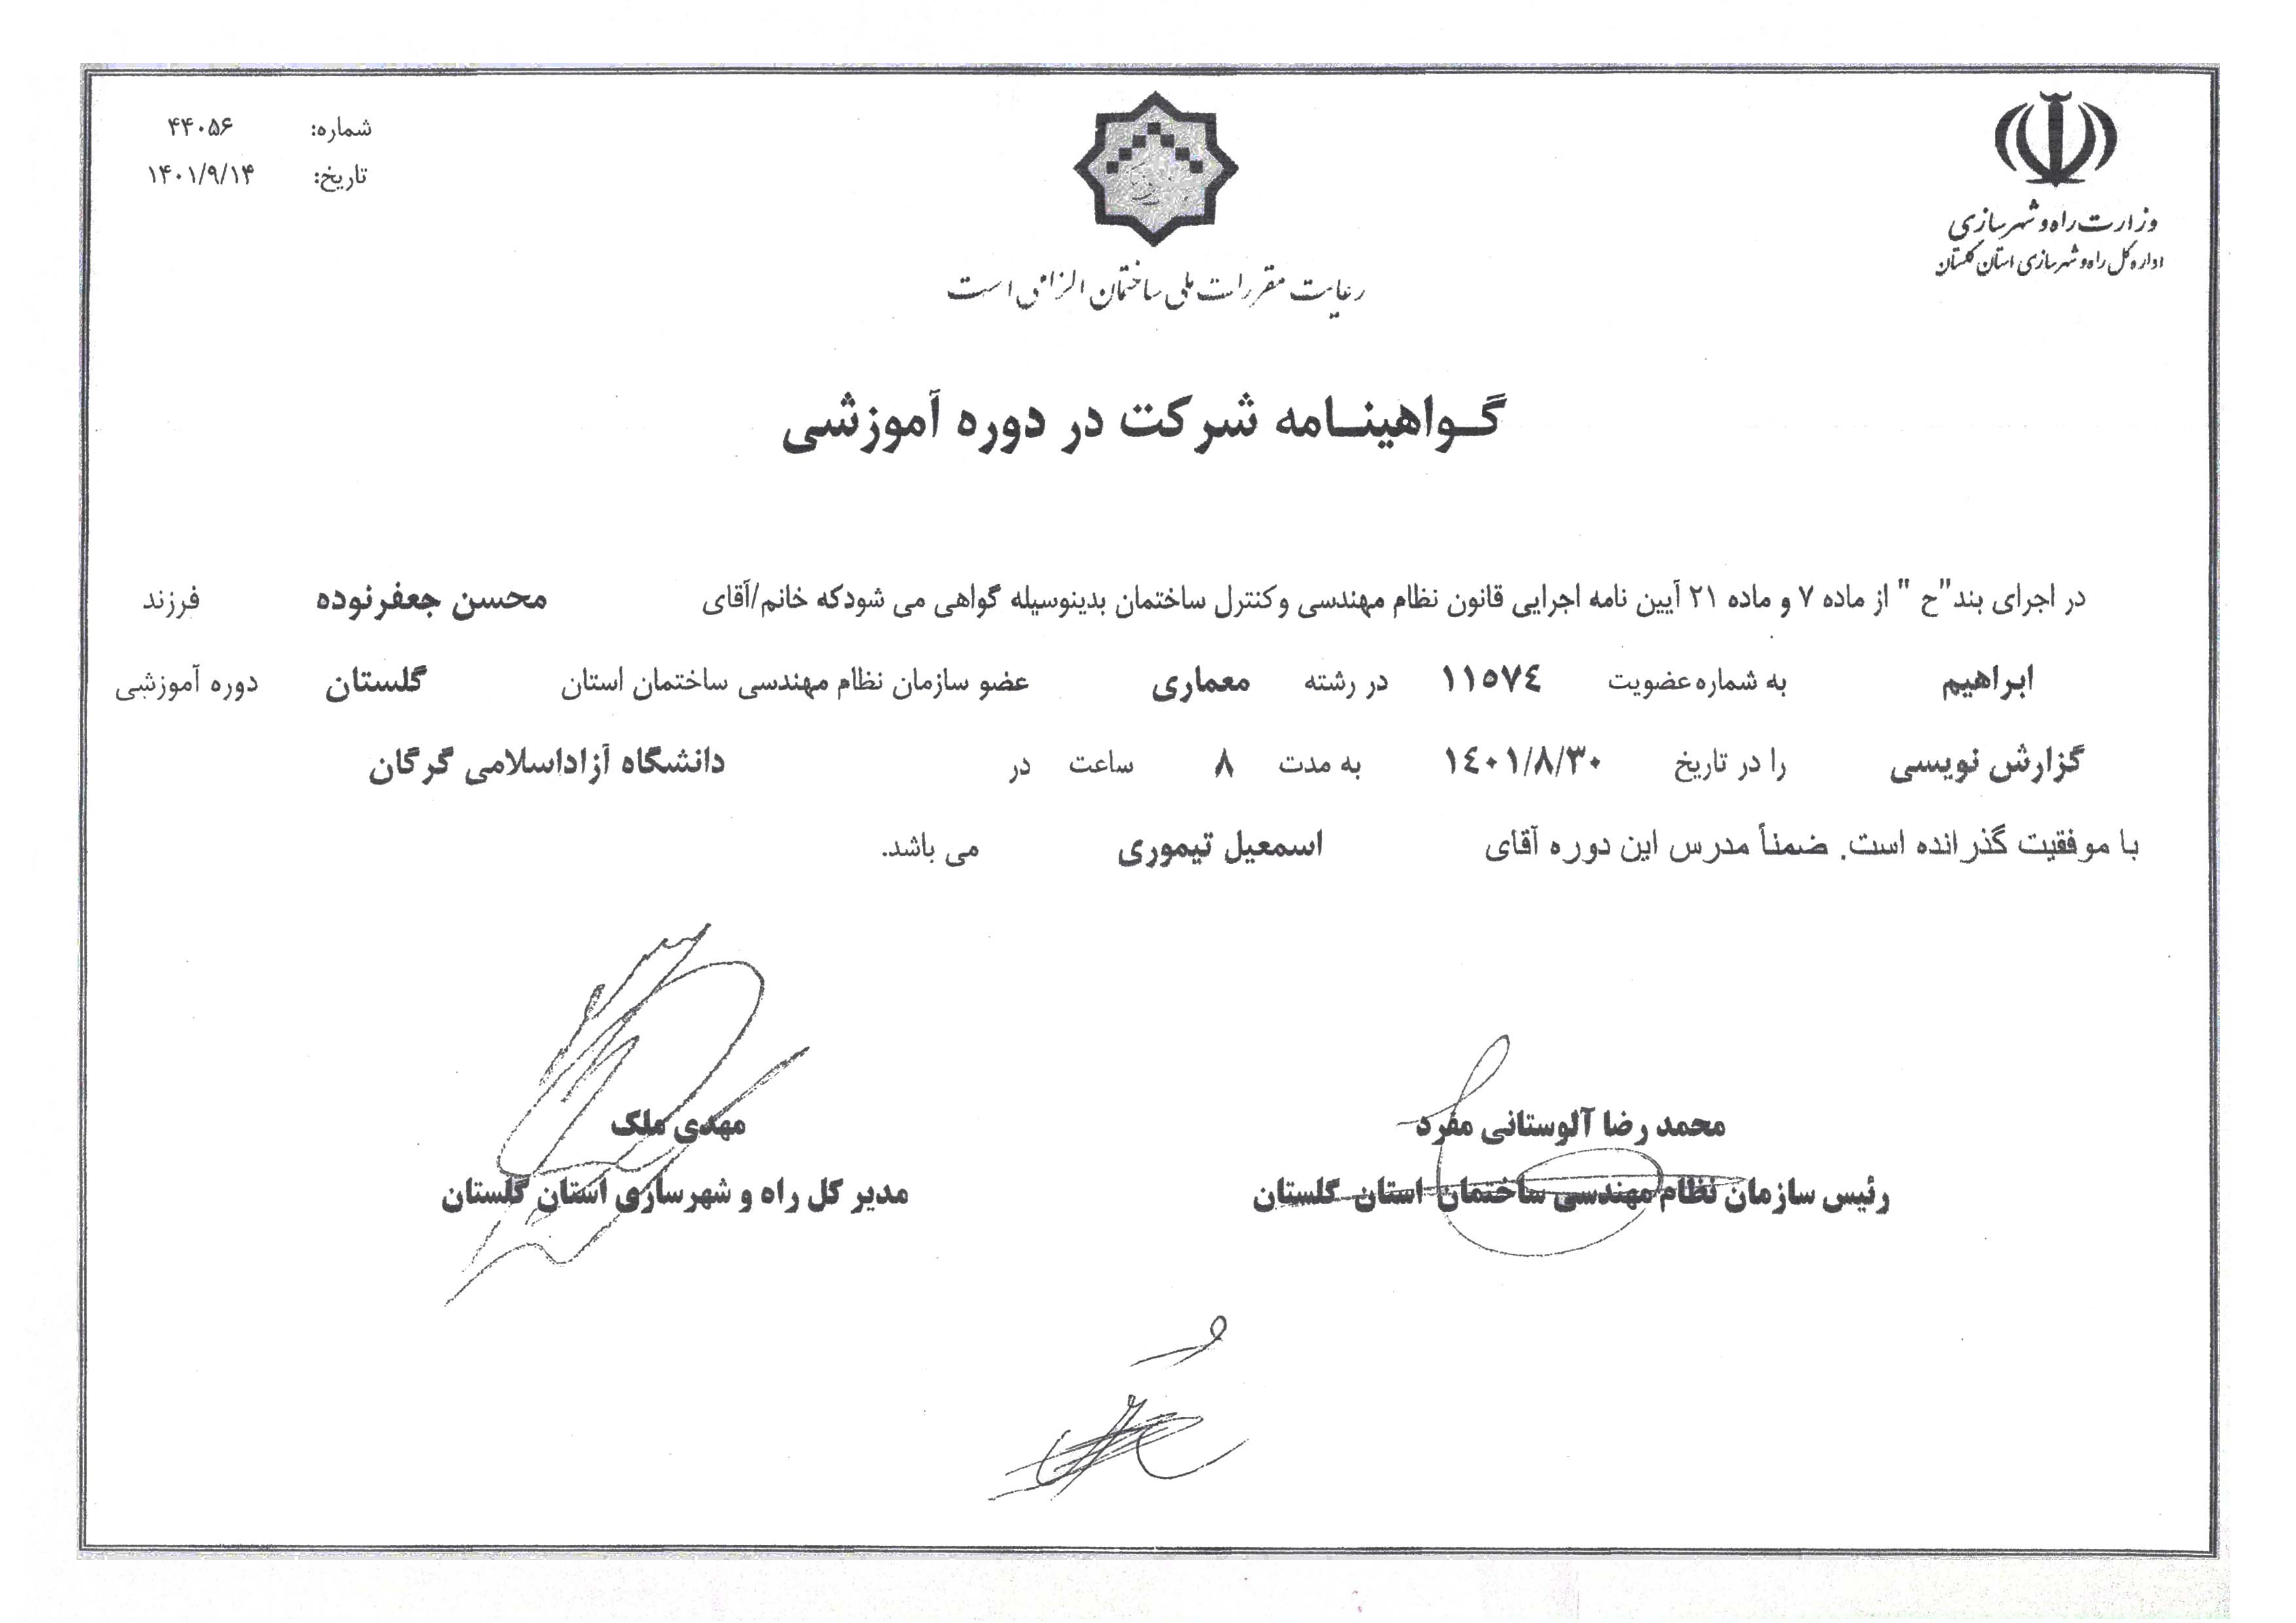 وزارت راه و شهرسازی
اداره کل راه و شهرسازی استان گلستان
رعایت مقررات ملی ساختمان الزامی است
شماره: ۴۴۰۵۶
تاریخ: ۱۴۰۱/۹/۱۴
گواهینامه شرکت در دوره آموزشی
در اجرای بند"ح " از ماده ۷ و ماده ۲۱ آیین نامه اجرایی قانون نظام مهندسی وکنترل ساختمان بدینوسیله گواهی می شودکه خانم/آقای محسن جعفرنوده فرزند
ابراهیم به شماره عضویت ١١٥٧٤ در رشته معماری عضو سازمان نظام مهندسی ساختمان استان گلستان دوره آموزشی
گزارش نویسی را در تاریخ ١٤٠١/٨/٣٠ به مدت ٨ ساعت در دانشگاه آزاداسلامی گرگان
با موفقیت گذرانده است. ضمناً مدرس این دوره آقای اسمعیل تیموری می باشد.
محمد رضا آلوستانی مفرد
رئیس سازمان نظام مهندسی ساختمان استان گلستان
مهدی ملک
مدیر کل راه و شهرسازی استان گلستان